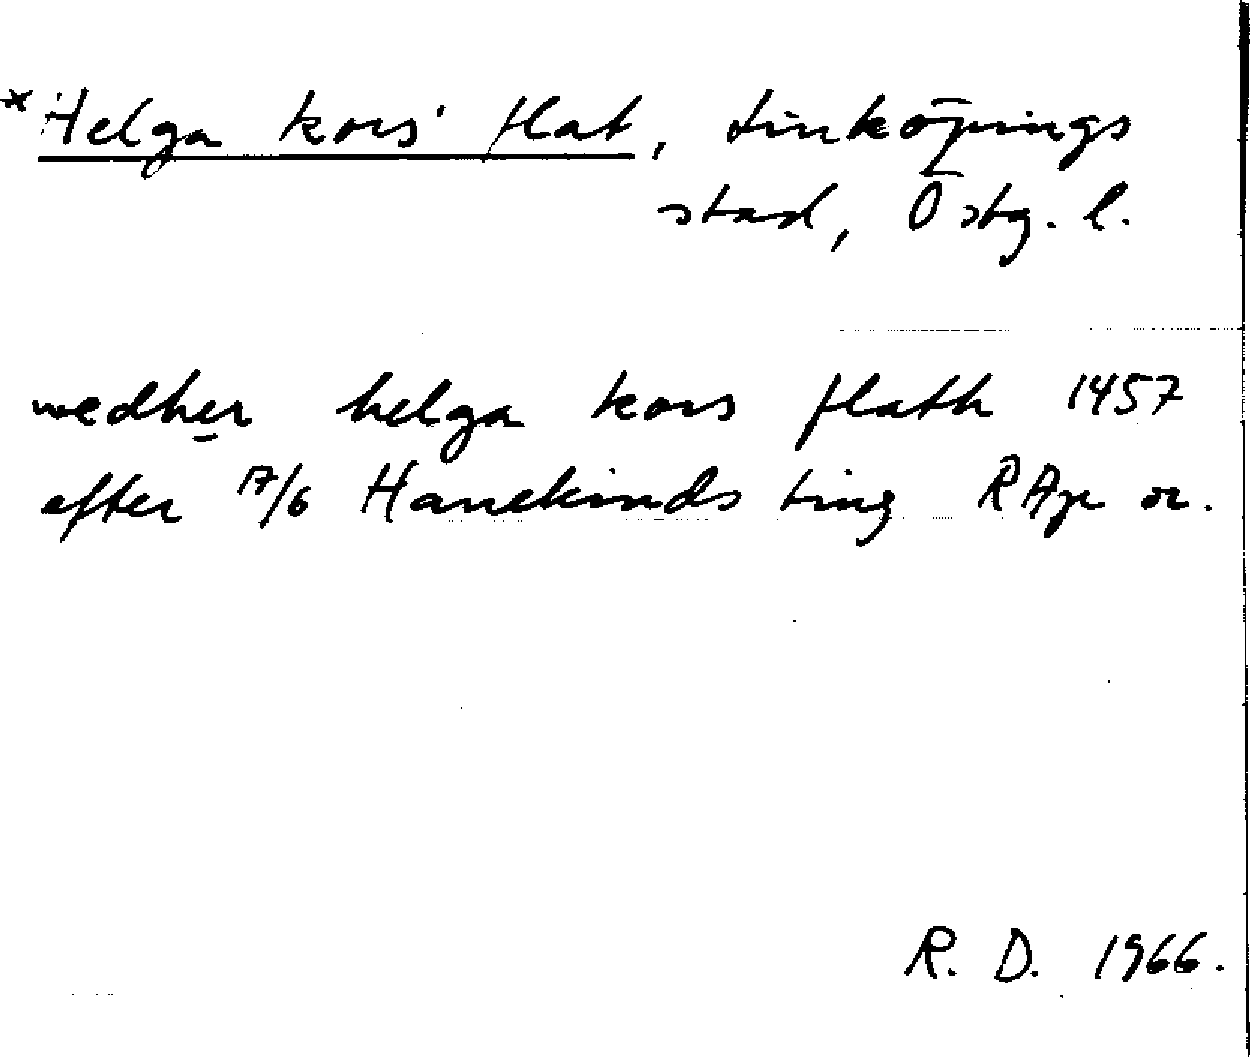 *Helga kors' flat, Linköpings
stad, Östg. l.
wedher helga kors flath 1457
efter 17/6 Hanekinds ting RAp or.
R. D. 1966.